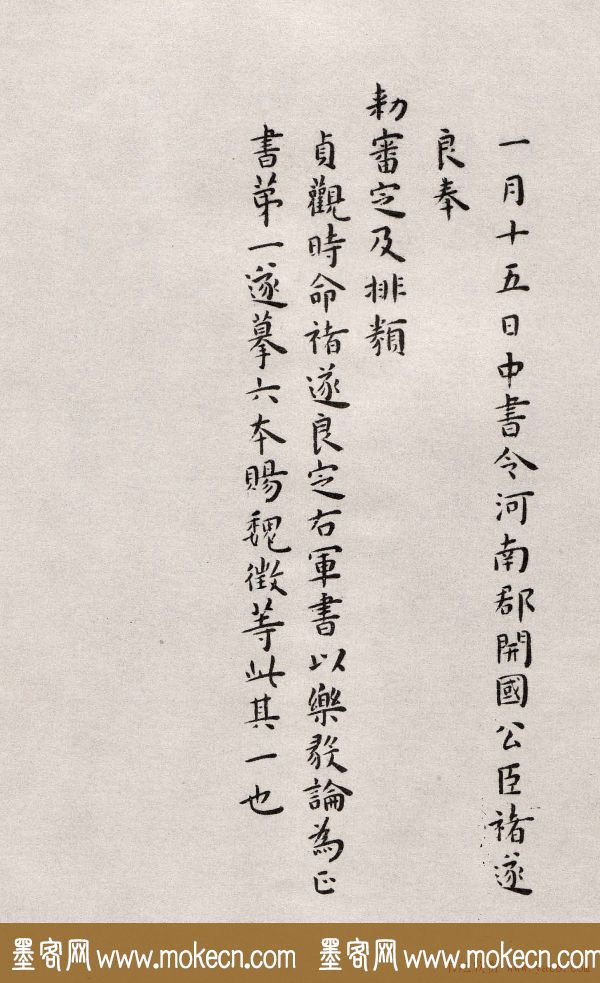 一月十五日中書令河南郡開國公臣褚遂
良奉
勑審定及排類
貞觀時命褚遂良定右軍書以樂毅論為正
書苐一遂摹六本賜魏徵等此其一也
墨客网 www.mokecn.com 墨客网 www.mokecn.com